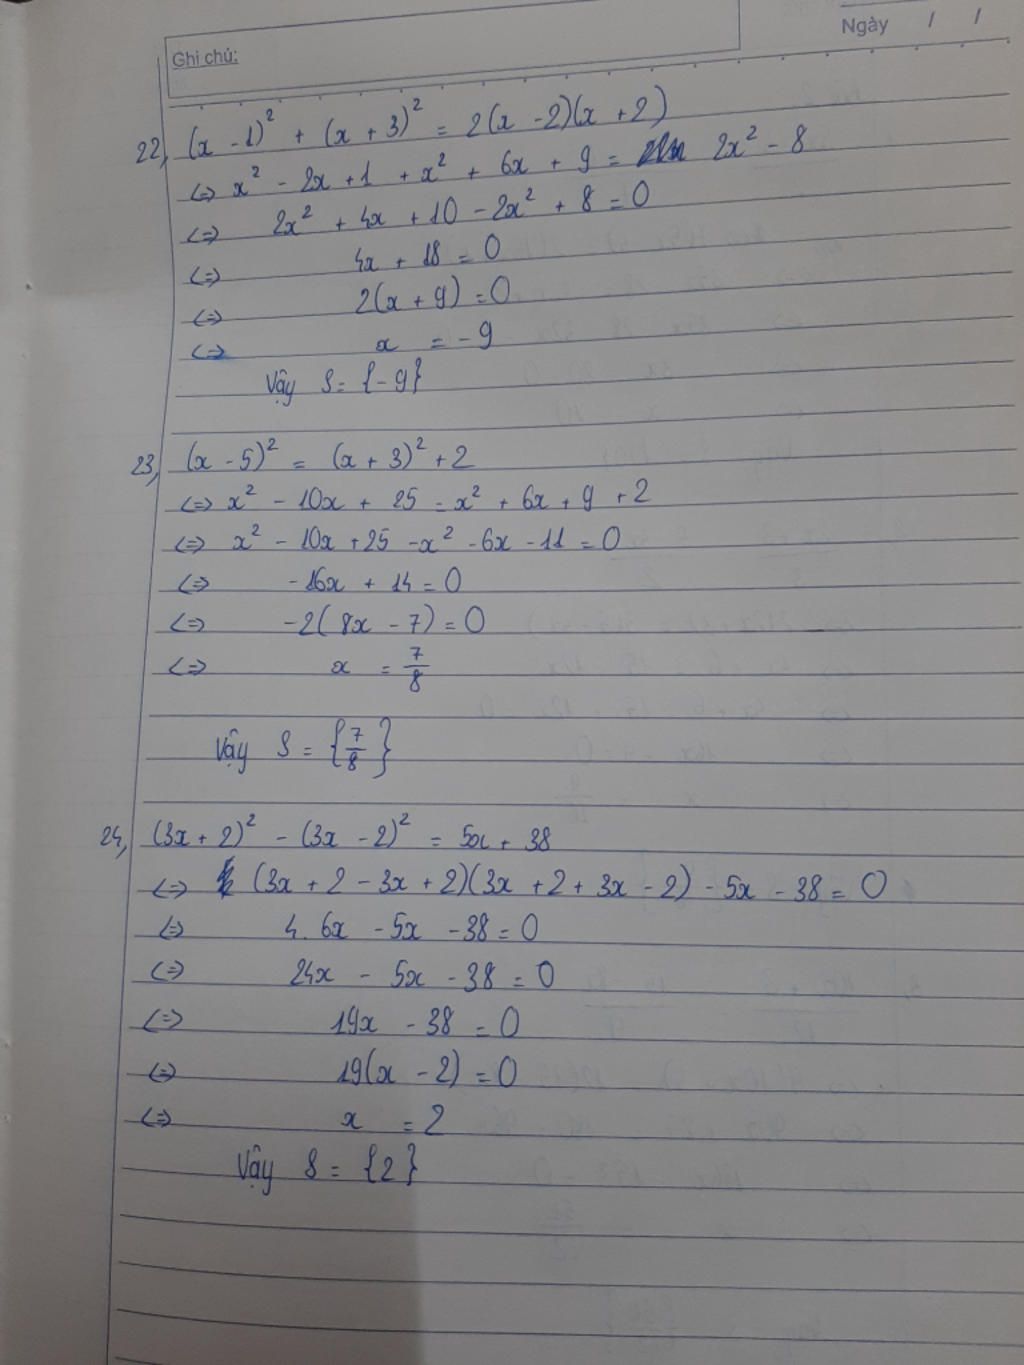 Ghi chú:
Ngày / /
22, (x - 1)² + (x + 3)² = 2(x - 2)(x + 2)
<=> x² - 2x + 1 + x² + 6x + 9 = 2x² - 8
<=> 2x² + 4x + 10 - 2x² + 8 = 0
<=> 4x + 18 = 0
<=> 2(x + 9) = 0
<=> x = -9
Vậy S = {-9}
23, (x - 5)² = (x + 3)² + 2
<=> x² - 10x + 25 = x² + 6x + 9 + 2
<=> x² - 10x + 25 - x² - 6x - 11 = 0
<=> -16x + 14 = 0
<=> -2(8x - 7) = 0
<=> x = 7/8
Vậy S = {7/8}
24, (3x + 2)² - (3x - 2)² = 5x + 38
<=> (3x + 2 - 3x + 2)(3x + 2 + 3x - 2) - 5x - 38 = 0
<=> 4. 6x - 5x - 38 = 0
<=> 24x - 5x - 38 = 0
<=> 19x - 38 = 0
<=> 19(x - 2) = 0
<=> x = 2
Vậy S = {2}